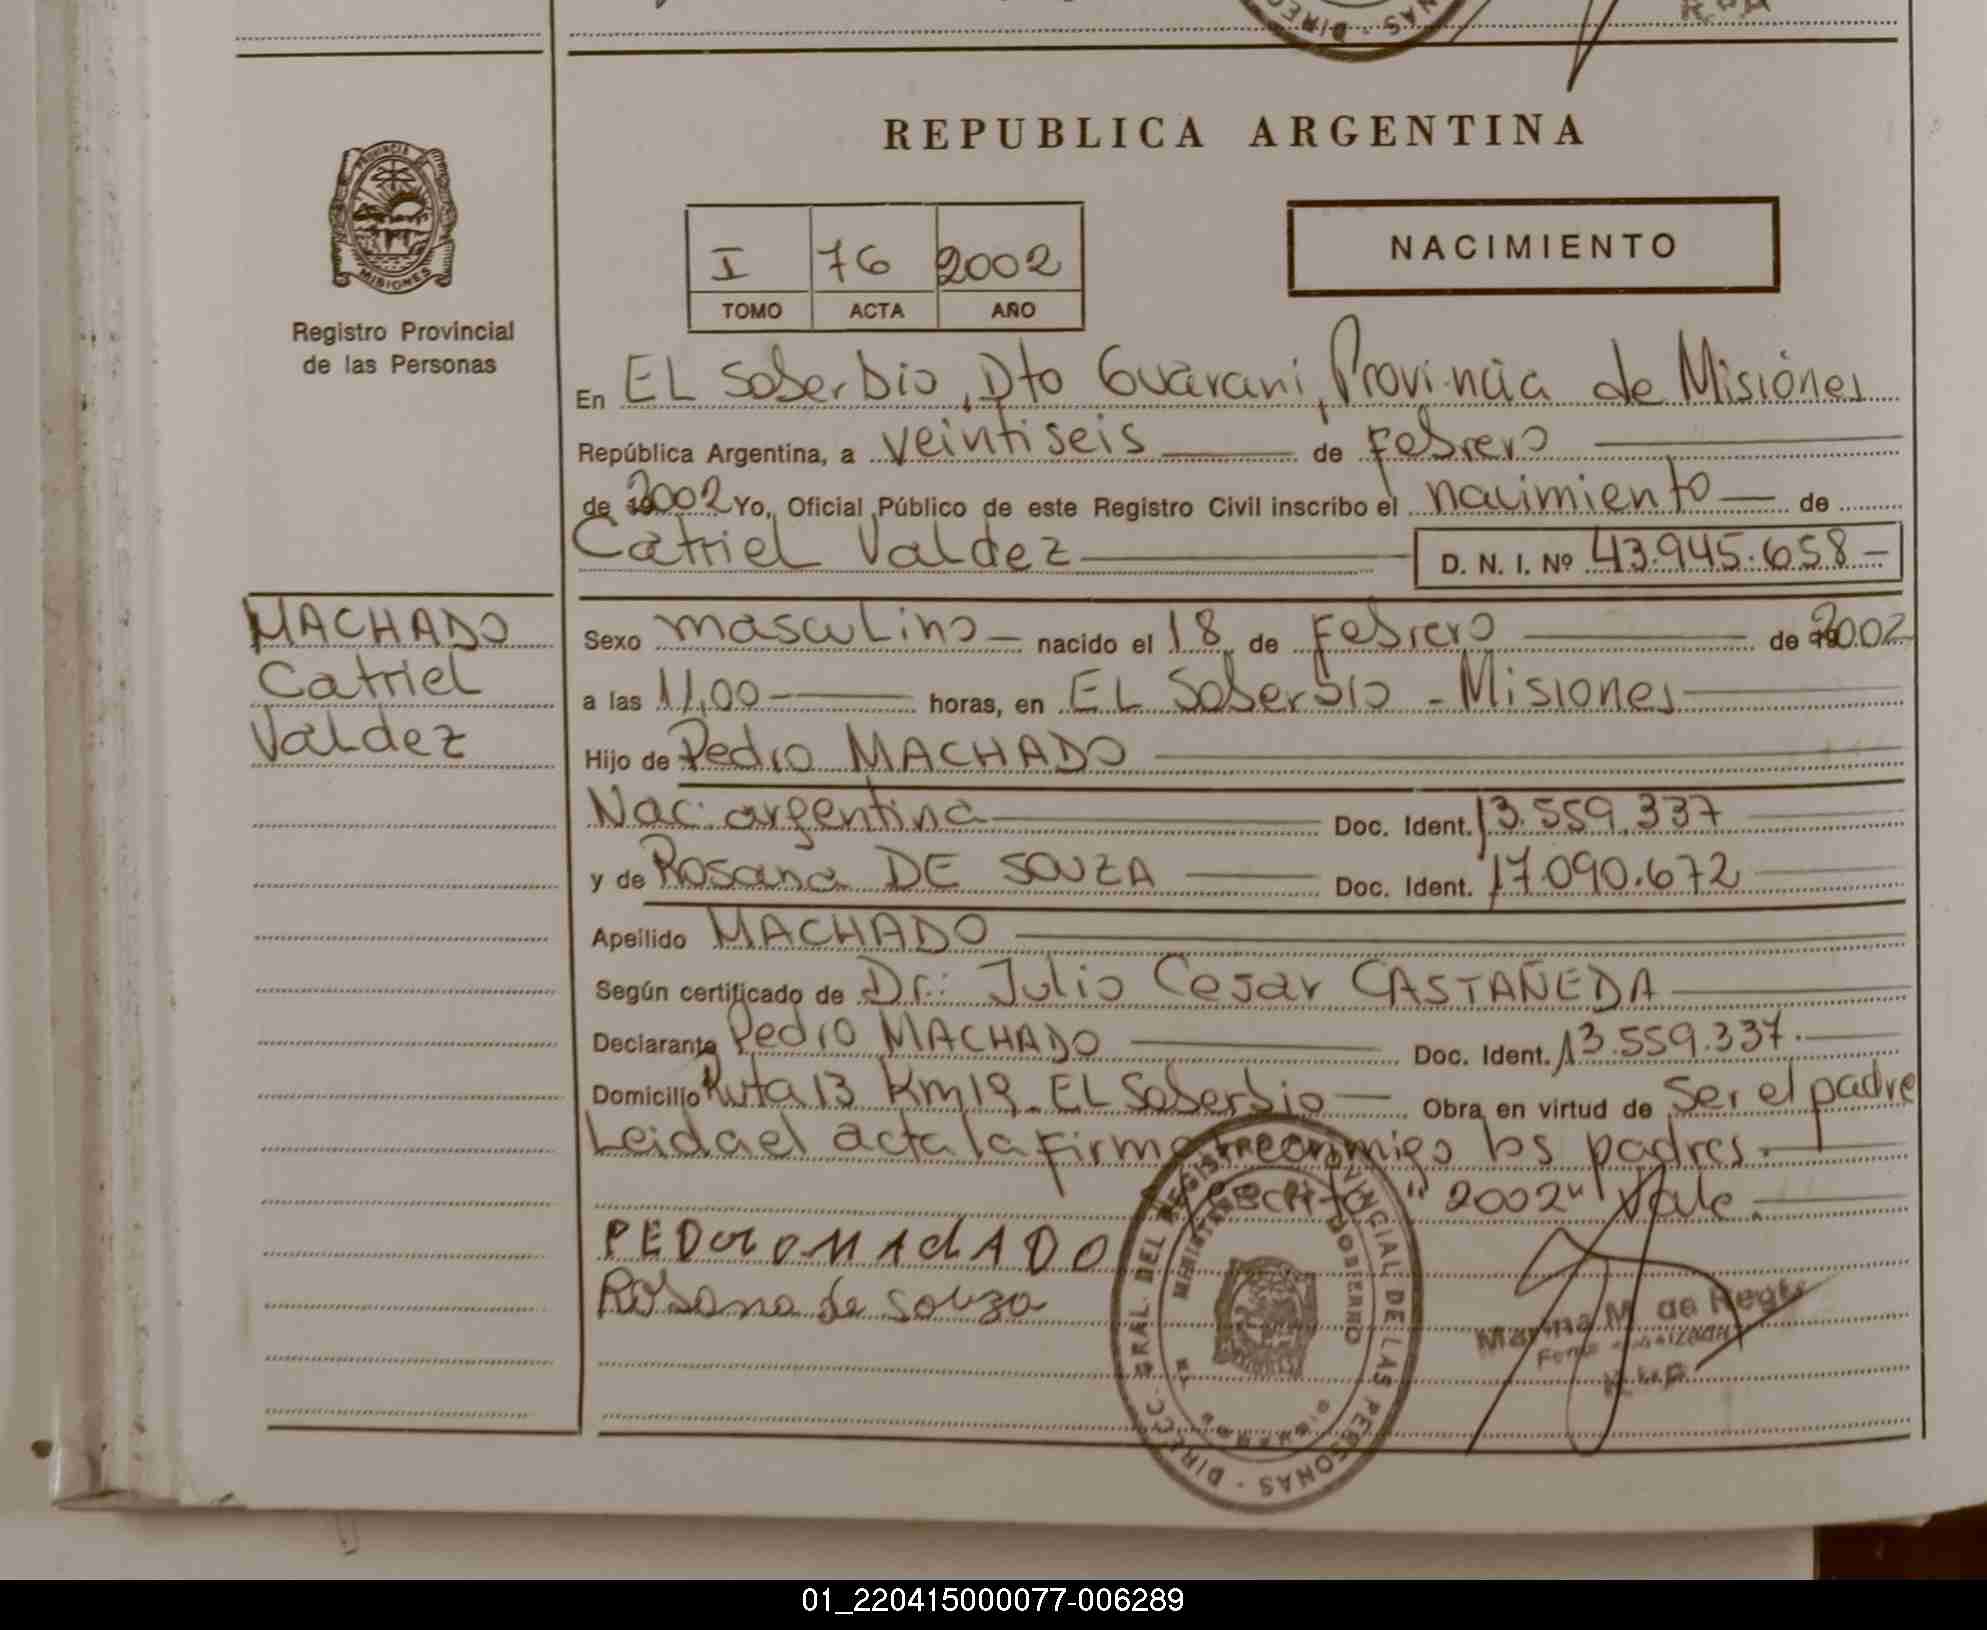 REPUBLICA ARGENTINA
PROVINCIA DE
MISIONES
Registro Provincial
de las Personas
I 76 2002
TOMO ACTA AÑO
NACIMIENTO
En EL Soberbio, Dto Guarani, Provincia de Misiones
República Argentina, a veintiseis de Febrero
de 2002 Yo, Oficial Público de este Registro Civil inscribo el nacimiento de
Catriel Valdez D. N. I. Nº 43.945.658
MACHADO
Catriel
Valdez
Sexo masculino nacido el 18 de Febrero de 2002
a las 11,00 horas, en EL Soberbio - Misiones
Hijo de Pedro MACHADO
Nac. argentina Doc. Ident. 13.559.337
y de Rosana DE SOUZA Doc. Ident. 17.090.672
Apellido MACHADO
Según certificado de Dr: Julio Cesar CASTAÑEDA
Declarante Pedro MACHADO Doc. Ident. 13.559.337.
Domicilio Ruta 13 Km 19 - EL Soberbio Obra en virtud de ser el padre
Leida el acta la firman conmigo los padres.
"2002" Vale.
PEDRO MACHADO
Rosana de Souza
DIRECC. GRAL. DEL REGISTRO PROVINCIAL DE LAS PERSONAS
MINISTERIO DE GOBIERNO
Marina M. de
01_220415000077-006289